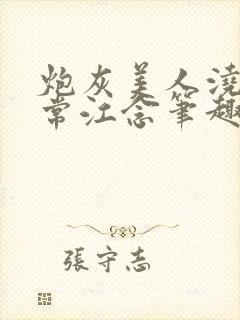 炮灰美人澆
常江念笔趣
張守志